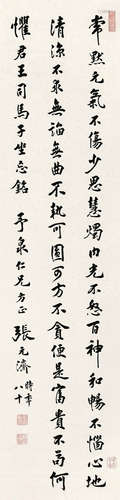 常默元氣不傷少思慧燭內光不怒百神和暢不惱心地
清涼不求無諂無曲不執可圓可方不貪便是富貴不苟何
懼君王司馬子坐忘銘 予泉仁兄方正 張元濟 時年八十